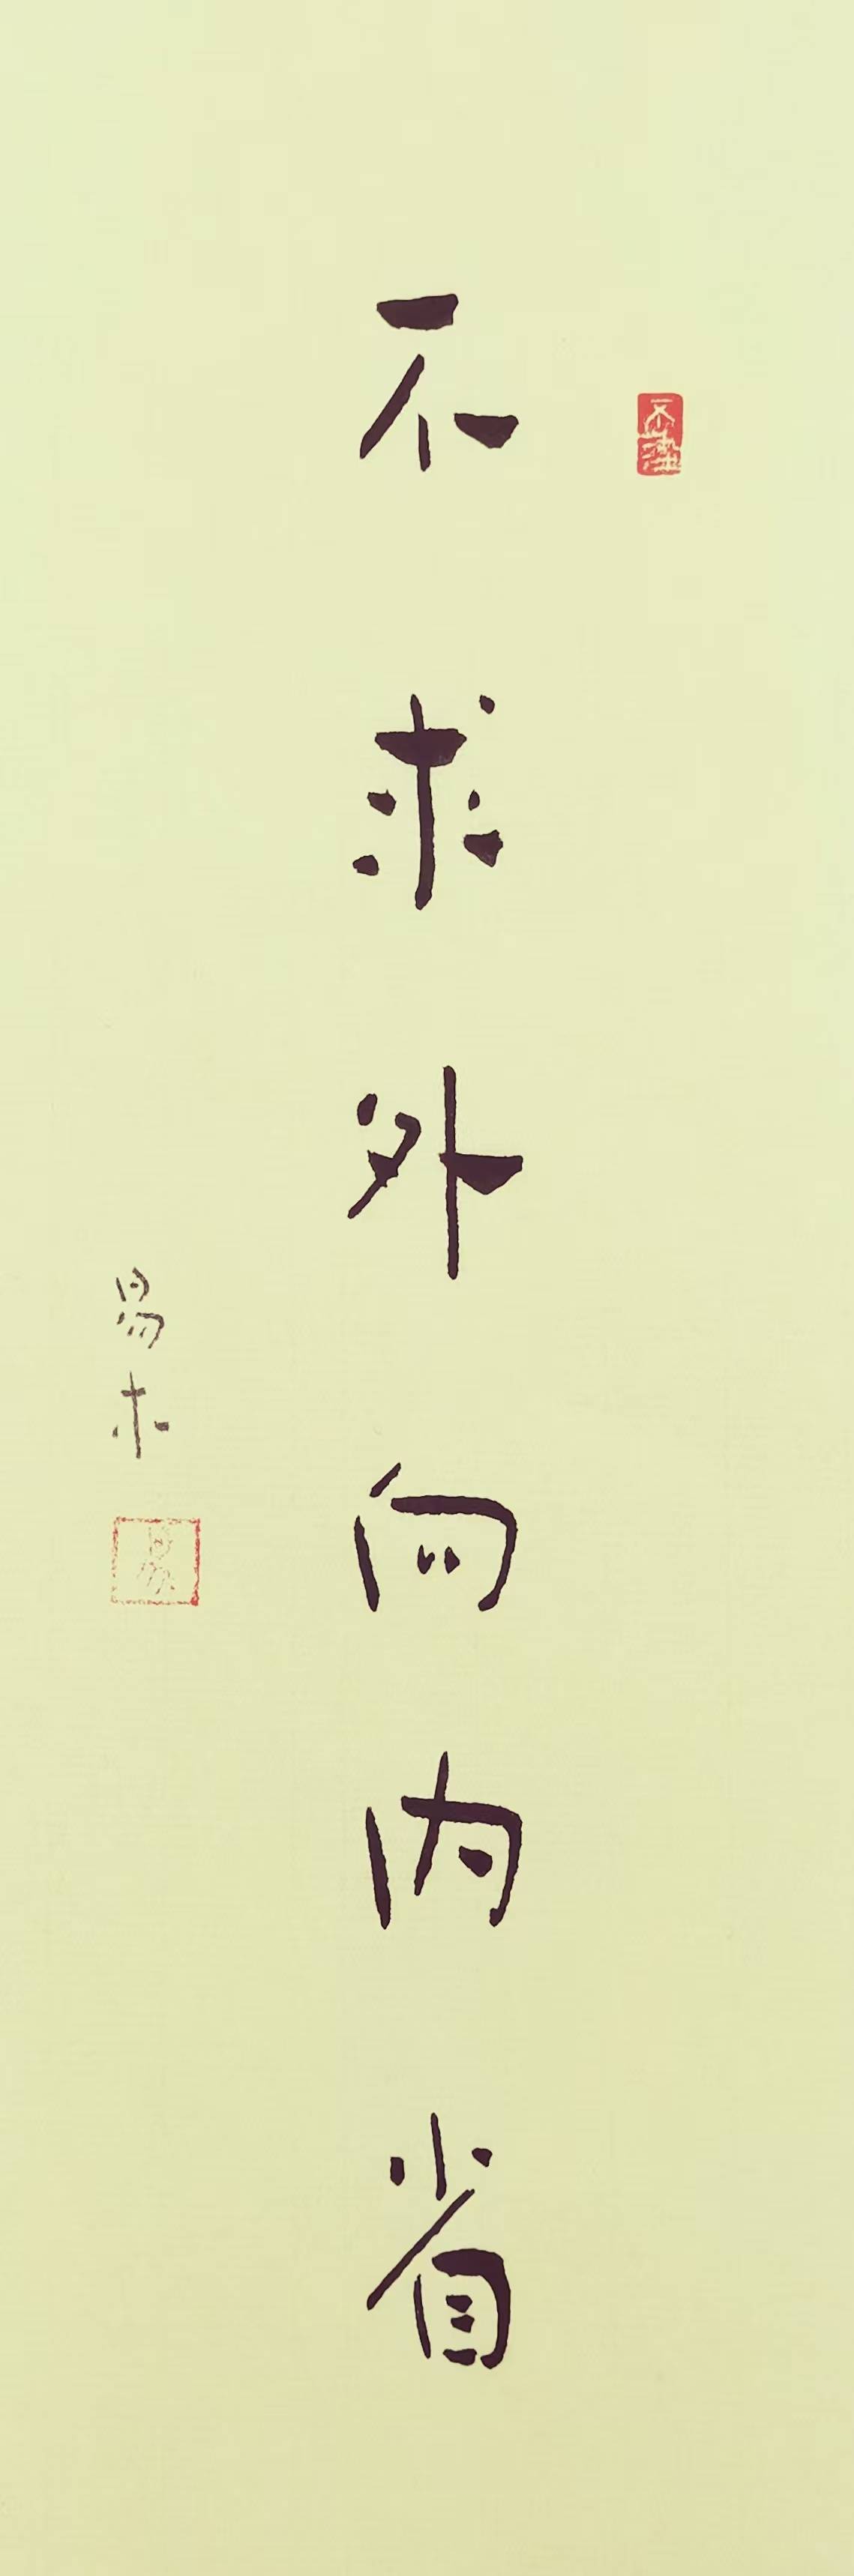 不求外向内省
易木